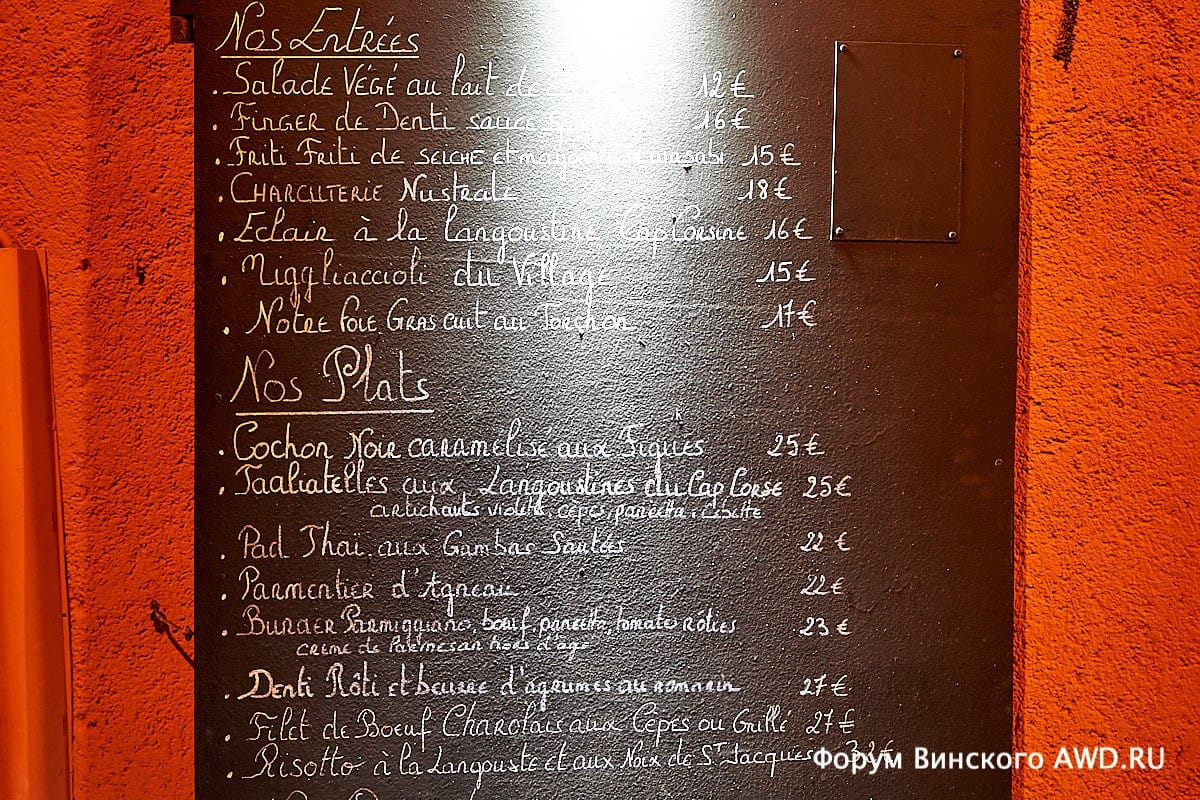 Nos Entrées
. Salade Végé au lait de 12€
. Finger de Denti sauce 16€
. Friti Friti de seiche et wasabi 15€
. Charcuterie Nustrale 18€
. Eclair à la langoustine Cap Corsine 16€
. Miggliaccioli du Village 15€
. Notre foie Gras cuit au Torchon 17€
Nos Plats
. Cochon Noir caramélisé aux Figues 25€
. Tagliatelles aux Langoustines du Cap Corse 25€
artichauts violets, cèpes, pancetta, cibette
. Pad Thaï aux Gambas Sautées 22€
. Parmentier d'Agneau 22€
. Burger Parmiggiano, boeuf, pancetta, tomates rôties 23€
crème de Parmesan hors d'âge
. Denti Rôti et beurre d'agrumes au romarin 27€
. Filet de Boeuf Charolais aux Cèpes ou Grillé 27€
. Risotto à la Langouste et aux Noix de St Jacques 32€
Форум Винского AWD.RU